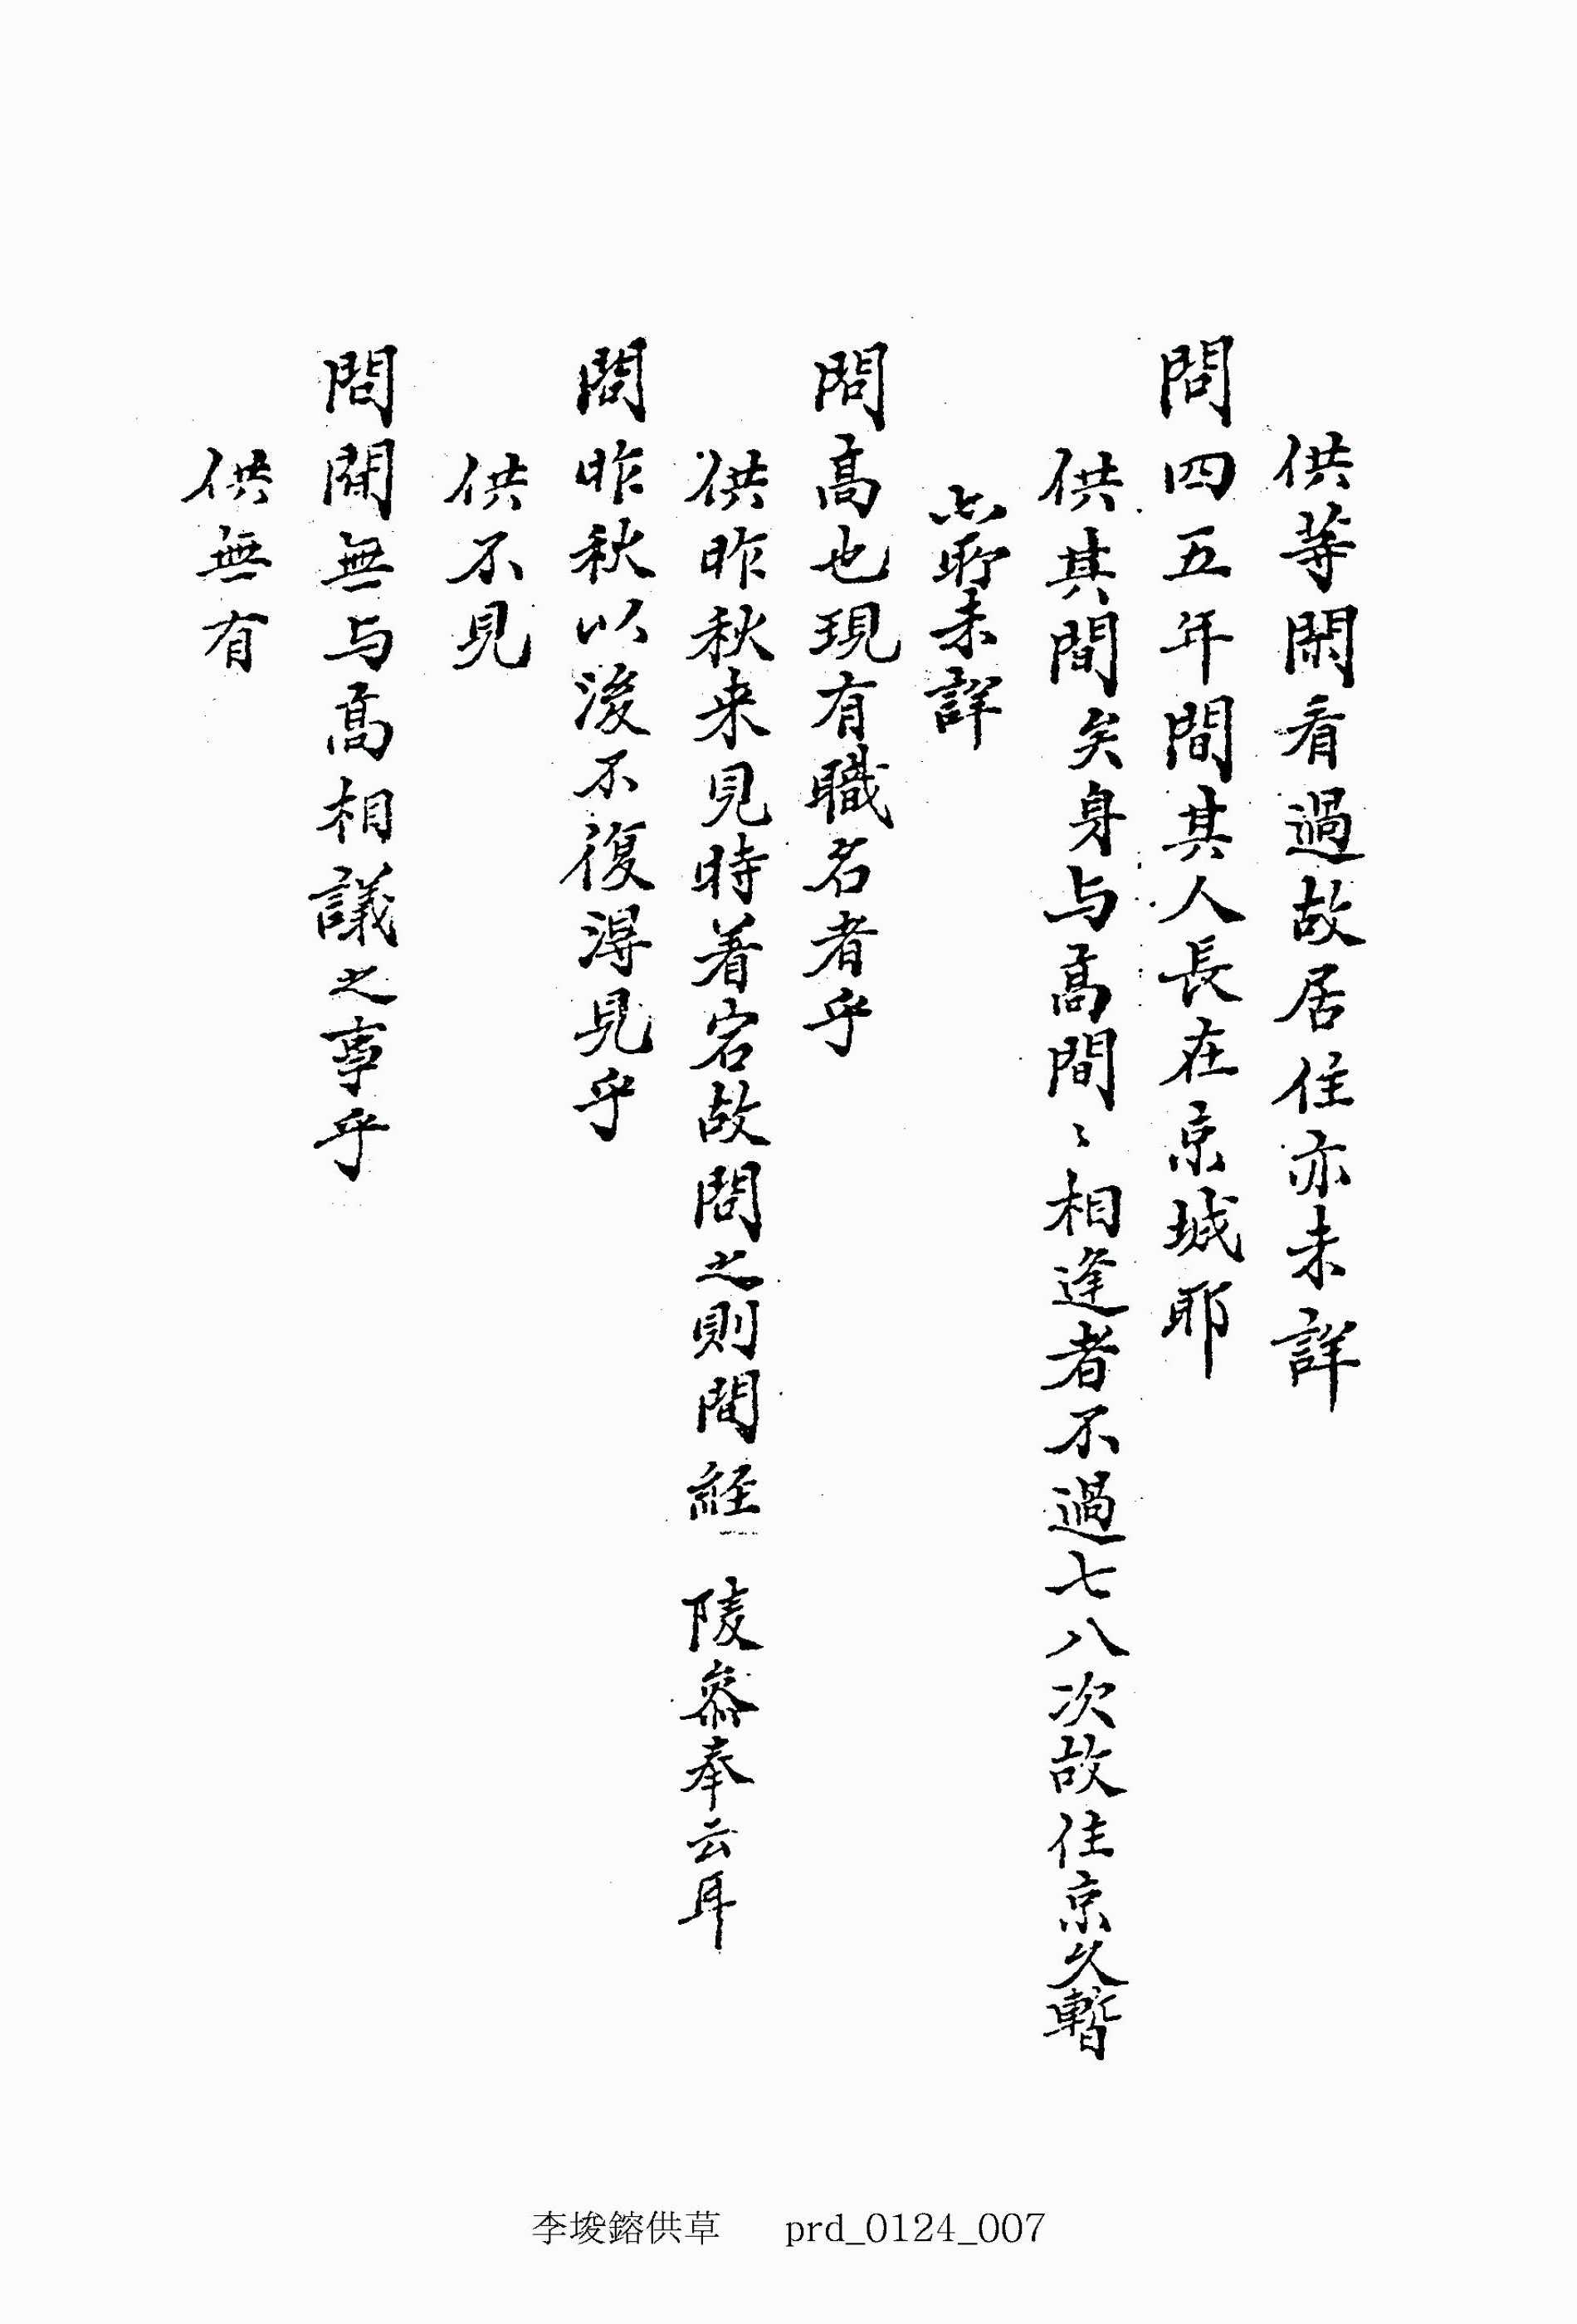 供等閑看過故居住亦未詳
問四五年間其人長在京城耶
供其間矣身与高間〻相逢者不過七八次故住京久暫
亦所未詳
問高也現有職名者乎
供昨秋来見時着宕故問之則間経　陵叅奉云耳
問昨秋以後不復淂見乎
供不見
問間無与高相議之事乎
供無有
李埈鎔供草　prd_0124_007